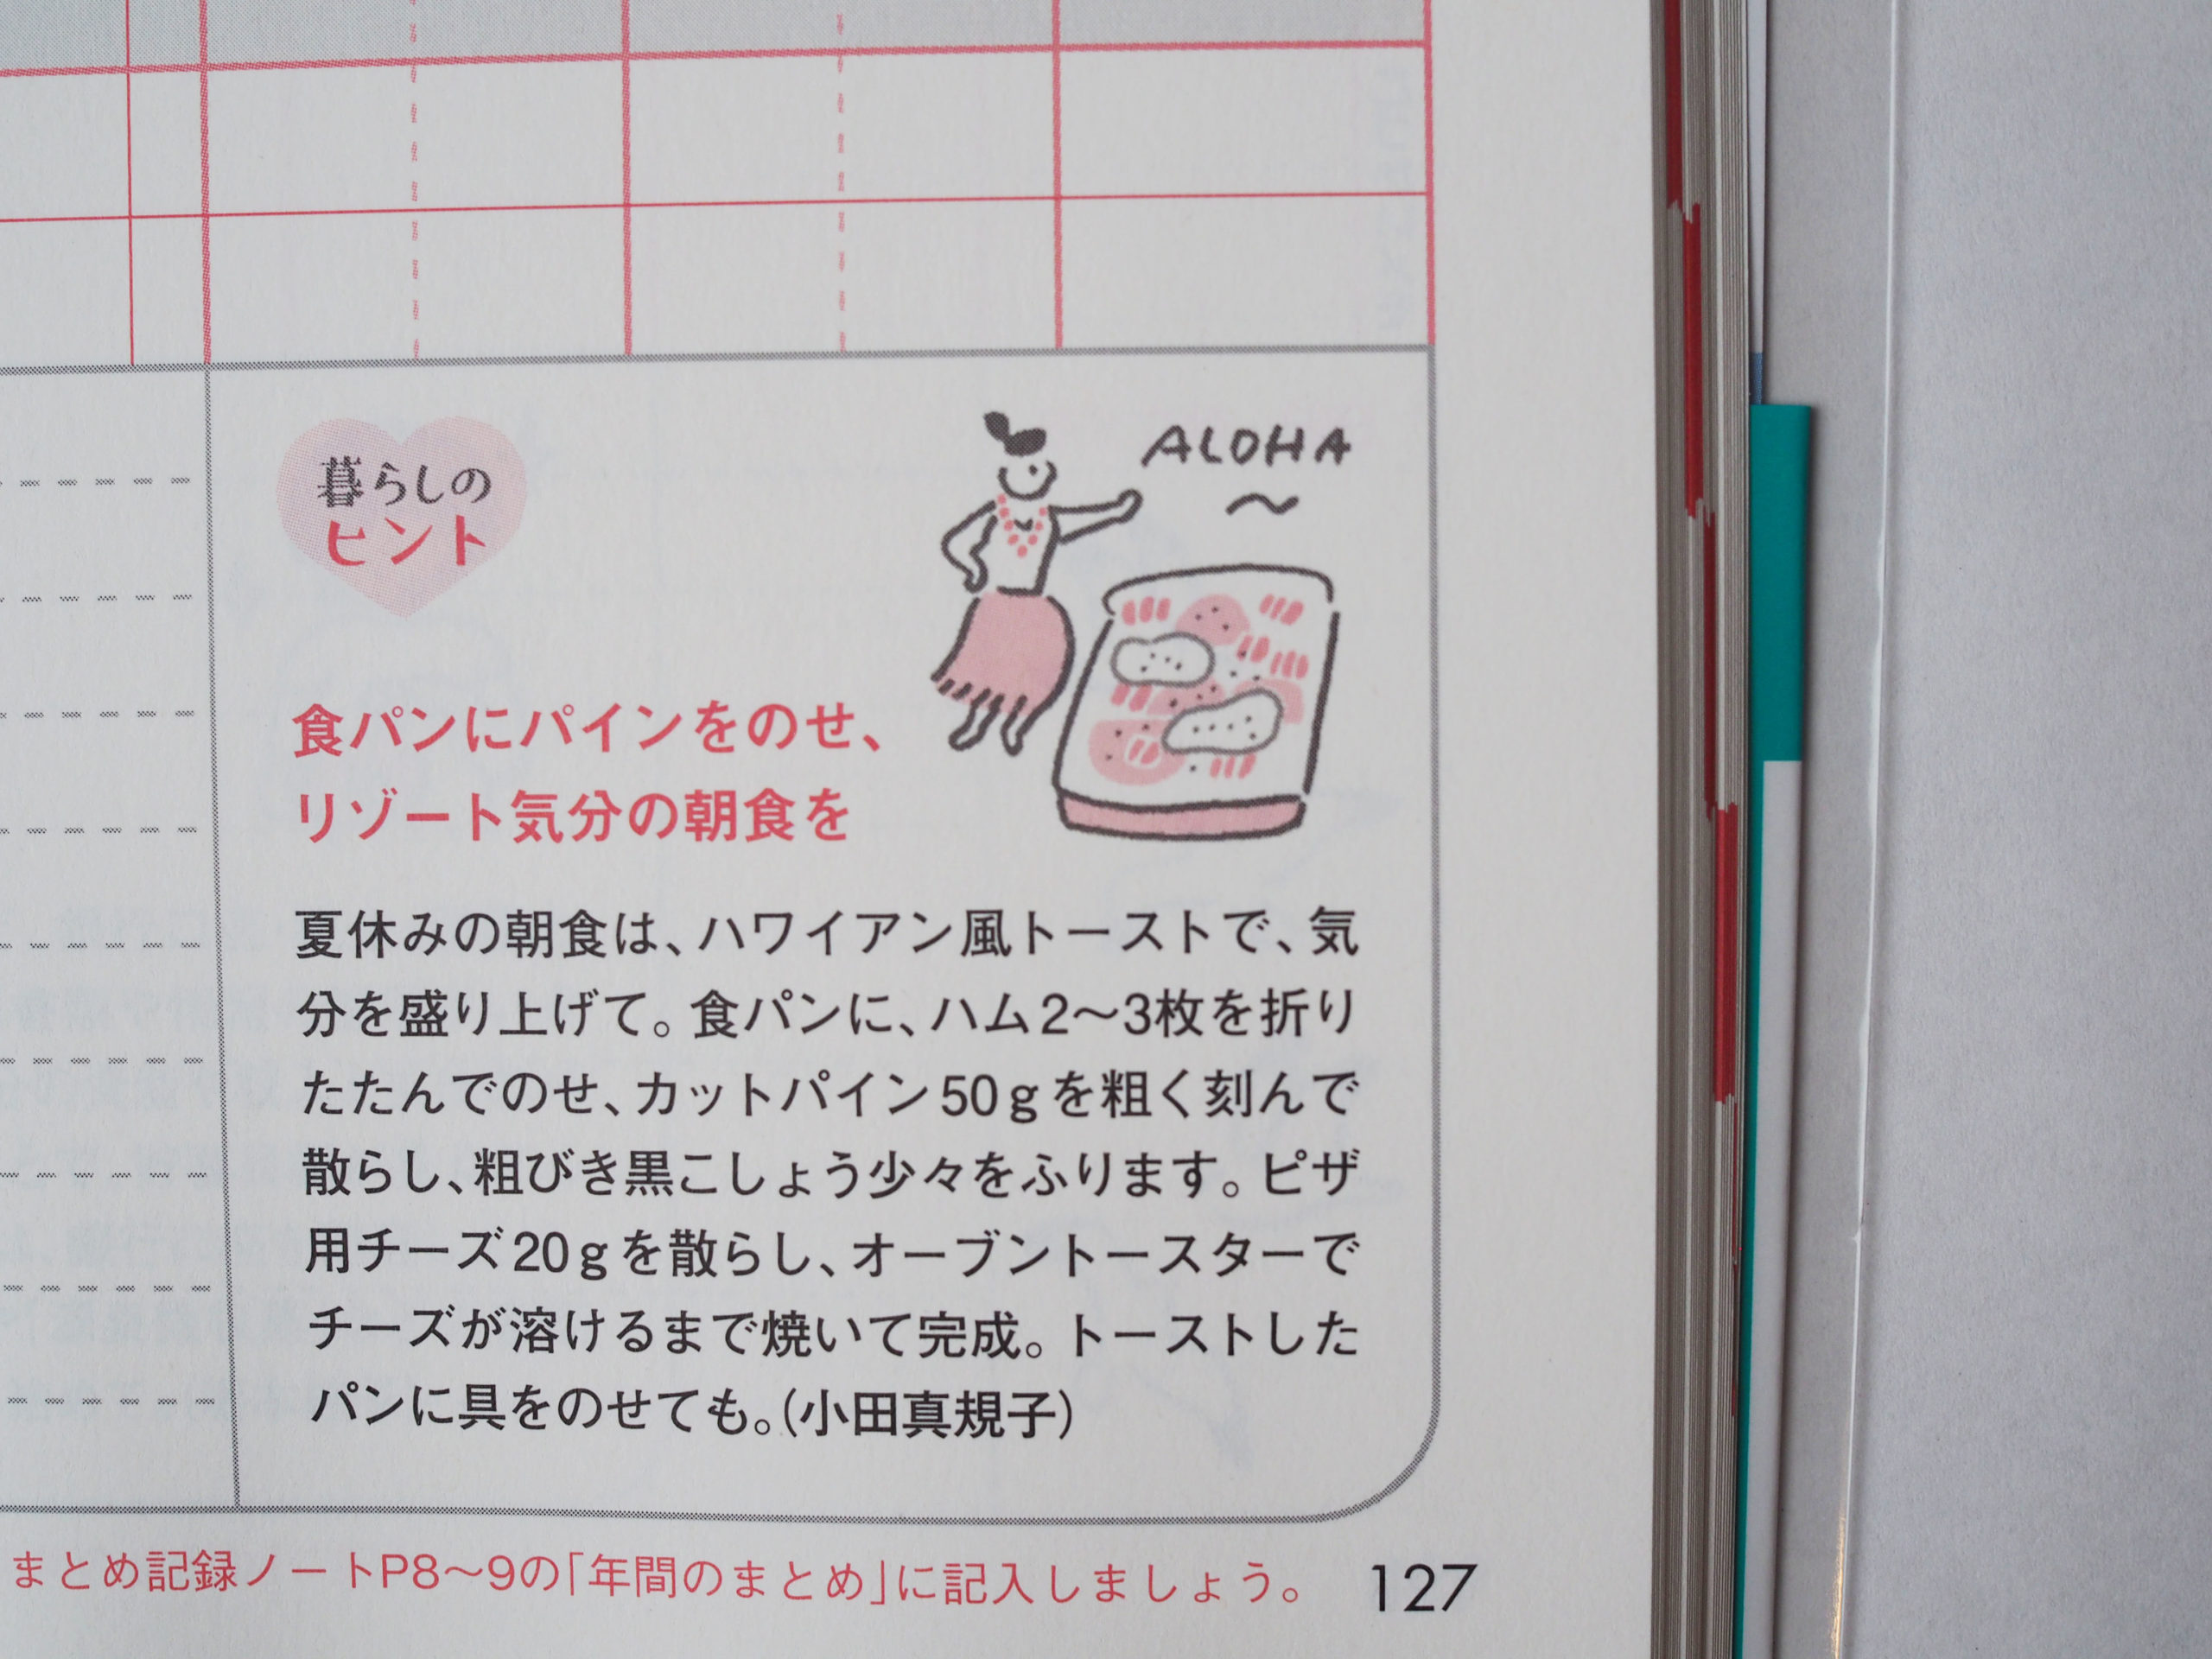 暮らしの
ヒント
ALOHA
〜
食パンにパインをのせ、
リゾート気分の朝食を
夏休みの朝食は、ハワイアン風トーストで、気
分を盛り上げて。食パンに、ハム2〜3枚を折り
たたんでのせ、カットパイン50gを粗く刻んで
散らし、粗びき黒こしょう少々をふります。ピザ
用チーズ20gを散らし、オーブントースターで
チーズが溶けるまで焼いて完成。トーストした
パンに具をのせても。(小田真規子)
まとめ記録ノートP8〜9の「年間のまとめ」に記入しましょう。 127